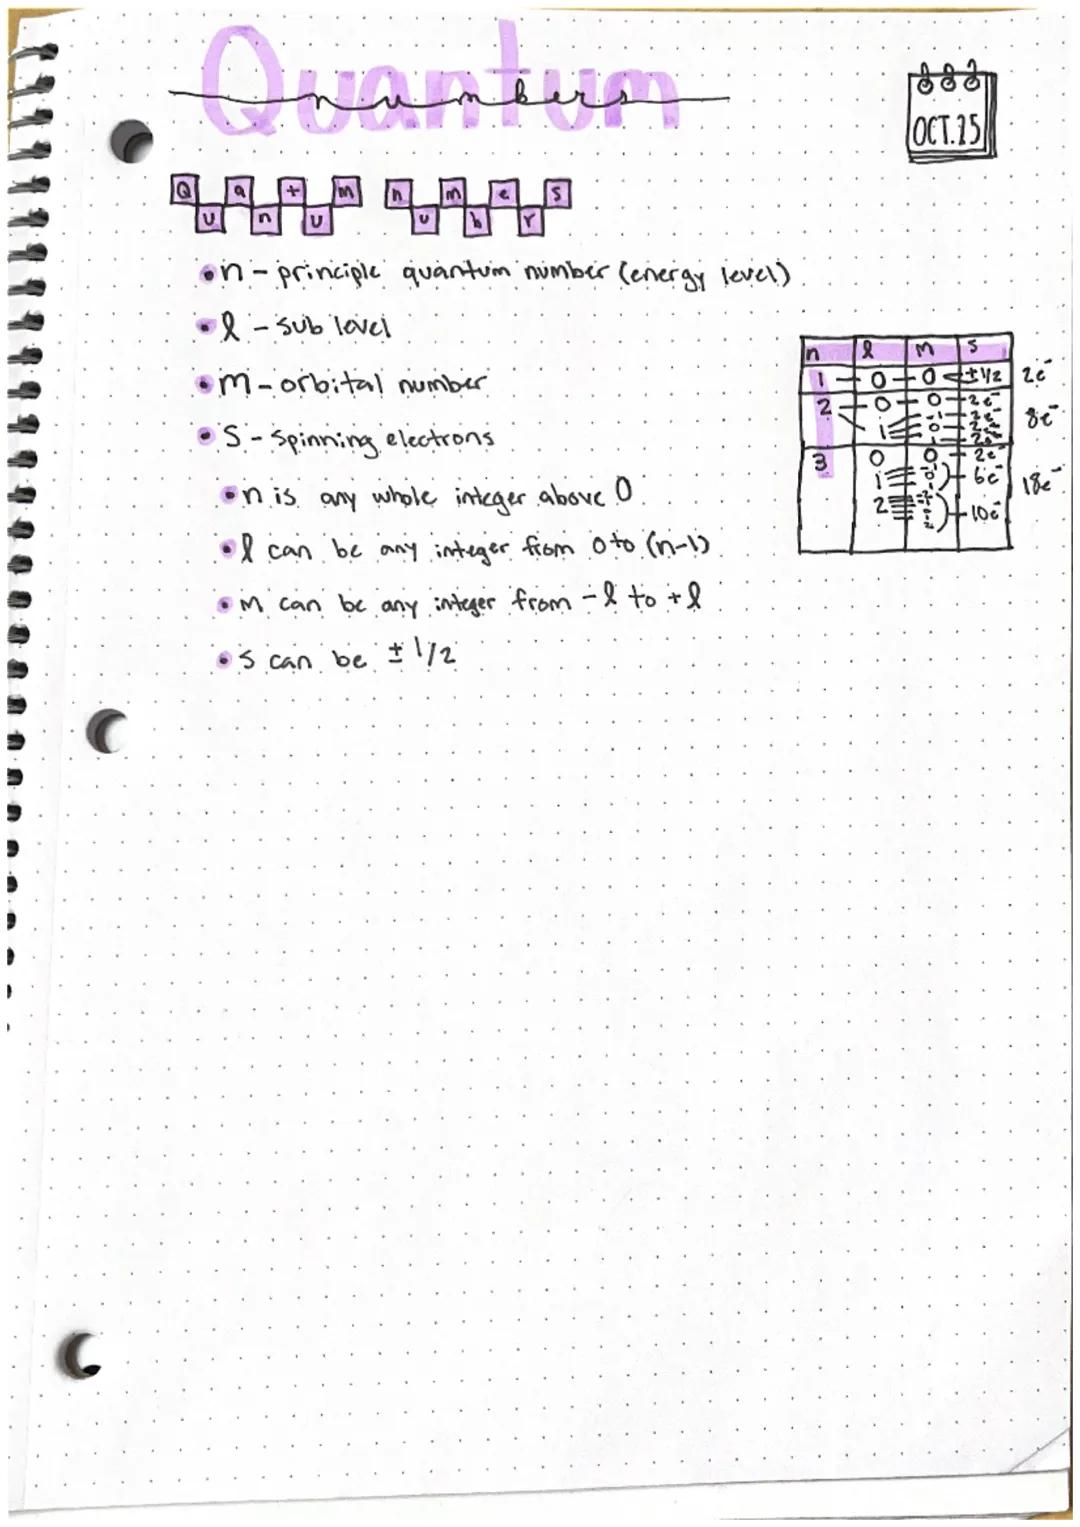 Quantum
numbers
OCT.25
Quantum numbers
n - principle quantum number (energy level)
l - sub level
m - orbital number
S - Spinning electrons
n is any whole integer above 0
l can be any integer from 0 to (n-1)
m can be any integer from -l to +l
s can be ± 1/2
n l m s
1 0 0 ±1/2 2e⁻
2 0 0 2e⁻ 8e⁻
1 -1 2e⁻
0 2e⁻
1 2e⁻
3 0 0 2e⁻ 18e⁻
1 6e⁻
2 10e⁻